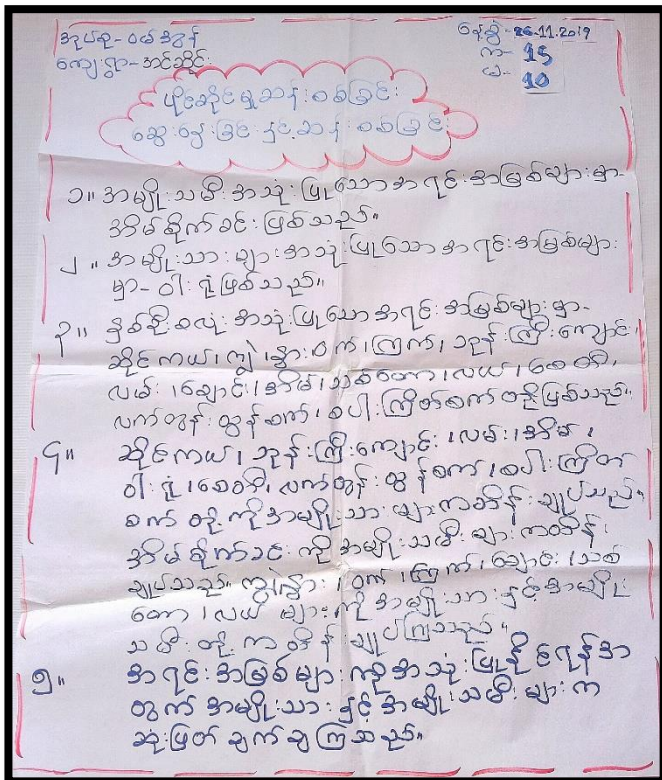 အုပ်စု-ဝမ်အွန်
ကျေးရွာ-အင်ဆိုင်း
နေ့စွဲ-26.11.2019
က- 15
မ- 10
ပိုင်ဆိုင်မှုဆန်းစစ်ခြင်း
ဆွေးနွေးခြင်းနှင့်ဆန်းစစ်ခြင်း
၁။ အမျိုးသမီးအသုံးပြုသောအရင်းအမြစ်များမှာ-
အိမ်စိုက်ခင်းဖြစ်သည်။
၂။ အမျိုးသားများအသုံးပြုသောအရင်းအမြစ်များ
မှာ-ဝါးရုံဖြစ်သည်။
၃။ နှစ်ဦးစလုံးအသုံးပြုသောအရင်းအမြစ်များမှာ-
ဆိုင်ကယ်၊ကျွဲ၊နွား၊ဝက်၊ကြက်၊ဘုန်းကြီးကျောင်း
လမ်း၊ချောင်း၊အိမ်၊သစ်တော၊လယ်၊စေတီ၊
လက်တွန်းထွန်စက်၊စပါးကြိတ်စက်တို့ဖြစ်သည်။
၄။ ဆိုင်ကယ်၊ဘုန်းကြီးကျောင်း၊လမ်း၊အိမ်၊
ဝါးရုံ၊စေတီ၊လက်တွန်းထွန်စက်၊စပါးကြိတ်
စက်တို့ကိုအမျိုးသားများကထိန်းချုပ်သည်။
အိမ်စိုက်ခင်းကိုအမျိုးသမီးများကထိန်း
ချုပ်သည်။ ကျွဲ၊နွား၊ဝက်၊ကြက်၊ချောင်း၊သစ်
တော၊လယ်များကိုအမျိုးသားနှင့်အမျိုး
သမီးတို့ကထိန်းချုပ်ကြသည်။
၅။ အရင်းအမြစ်များကိုအသုံးပြုနိုင်ရန်အ
တွက်အမျိုးသားနှင့်အမျိုးသမီးများက
ဆုံးဖြတ်ချက်ချကြသည်။